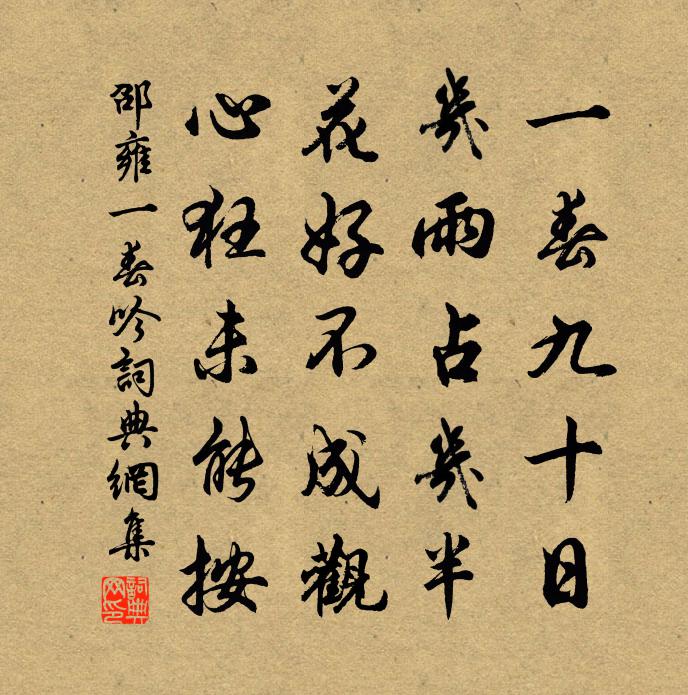 一春九十日
幾雨占幾半
花好不成觀
心狂未能按
邵雍一春吟詞典網集
詞典网印